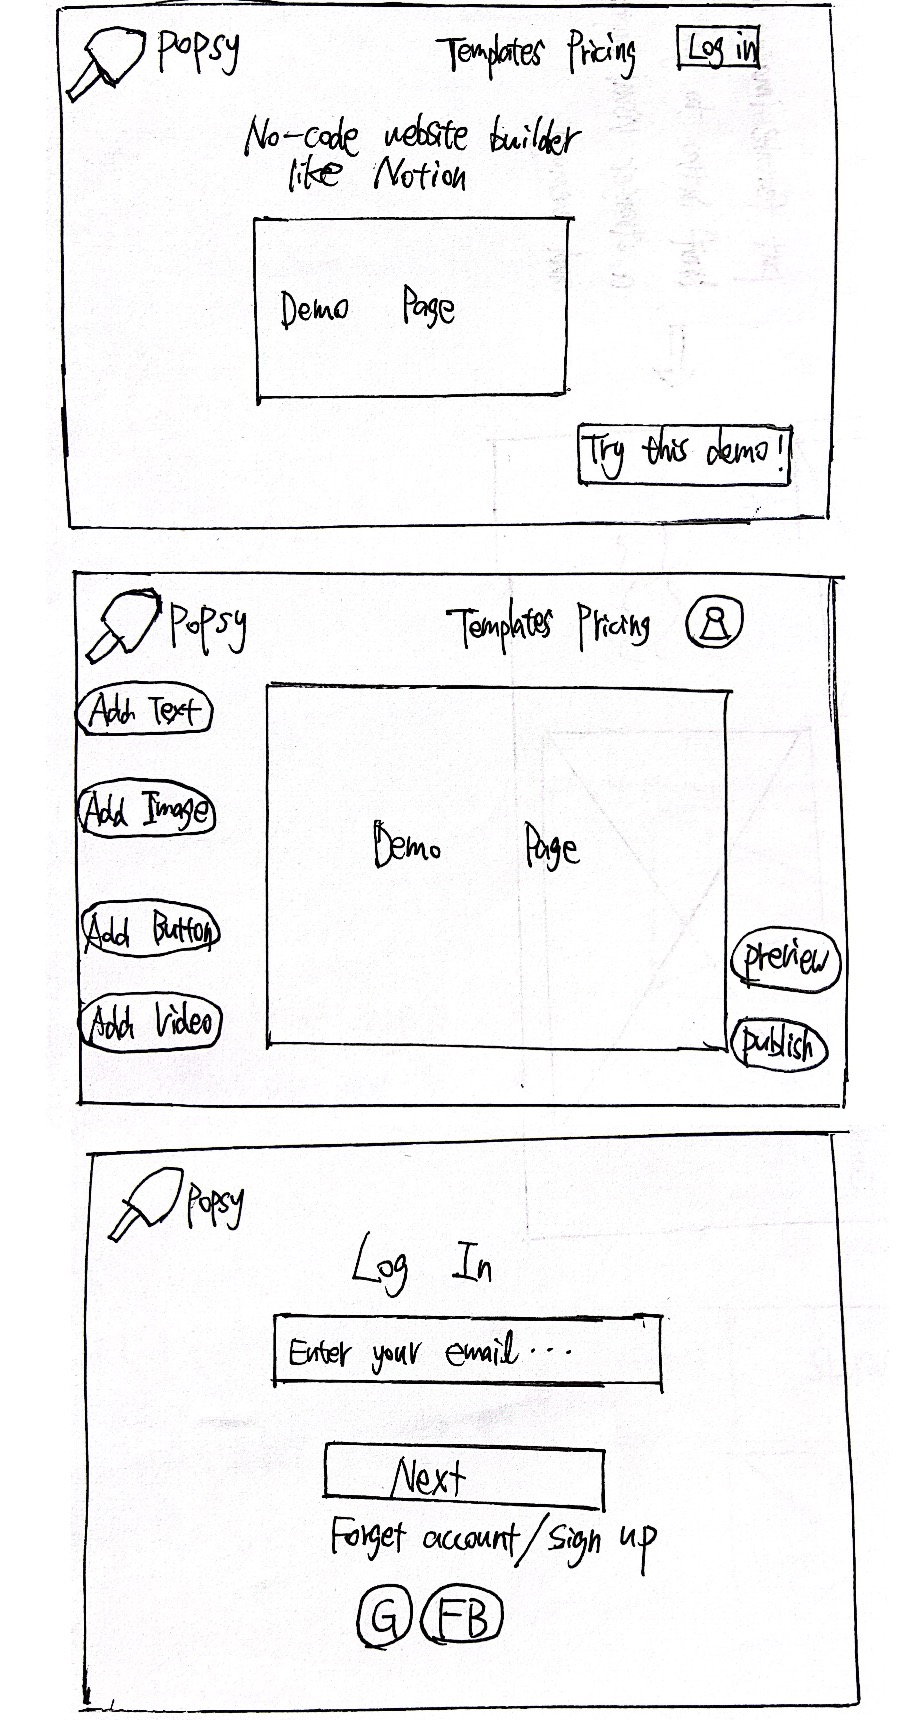 Popsy Templates Pricing Log in
No-code website builder
like Notion
Demo Page
Try this demo!
Popsy Templates Pricing
Add Text
Add Image
Demo Page
Add Button
preview
Add Video
publish
Popsy
Log In
Enter your email...
Next
Forget account/Sign up
G FB